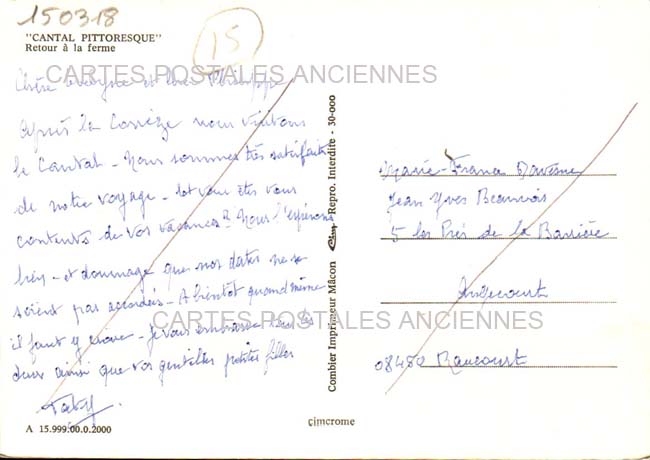 150318
15
"CANTAL PITTORESQUE"
Retour à la ferme
CARTES POSTALES ANCIENNES
Chère et cher Philippe
Après la Corrèze nous visitons
le Cantal - Nous sommes très satisfaits
de notre voyage - et vous êtes vous
contents de vos vacances? Nous l'espérons
bien - et dommage que nos dates ne se
soient pas accordées - A bientôt quand même
il faut y croire - Je vous embrasse tous les
deux ainsi que vos gentilles petites filles
A 15.999.00.0.2000
Combier Imprimeur Mâcon Repro. Interdite - 30-000
cimcrome
Marie-France
Jean Yves Beauvois
5 les Prés de la Barrière
Angecourt
CARTES POSTALES ANCIENNES
08450 Raucourt